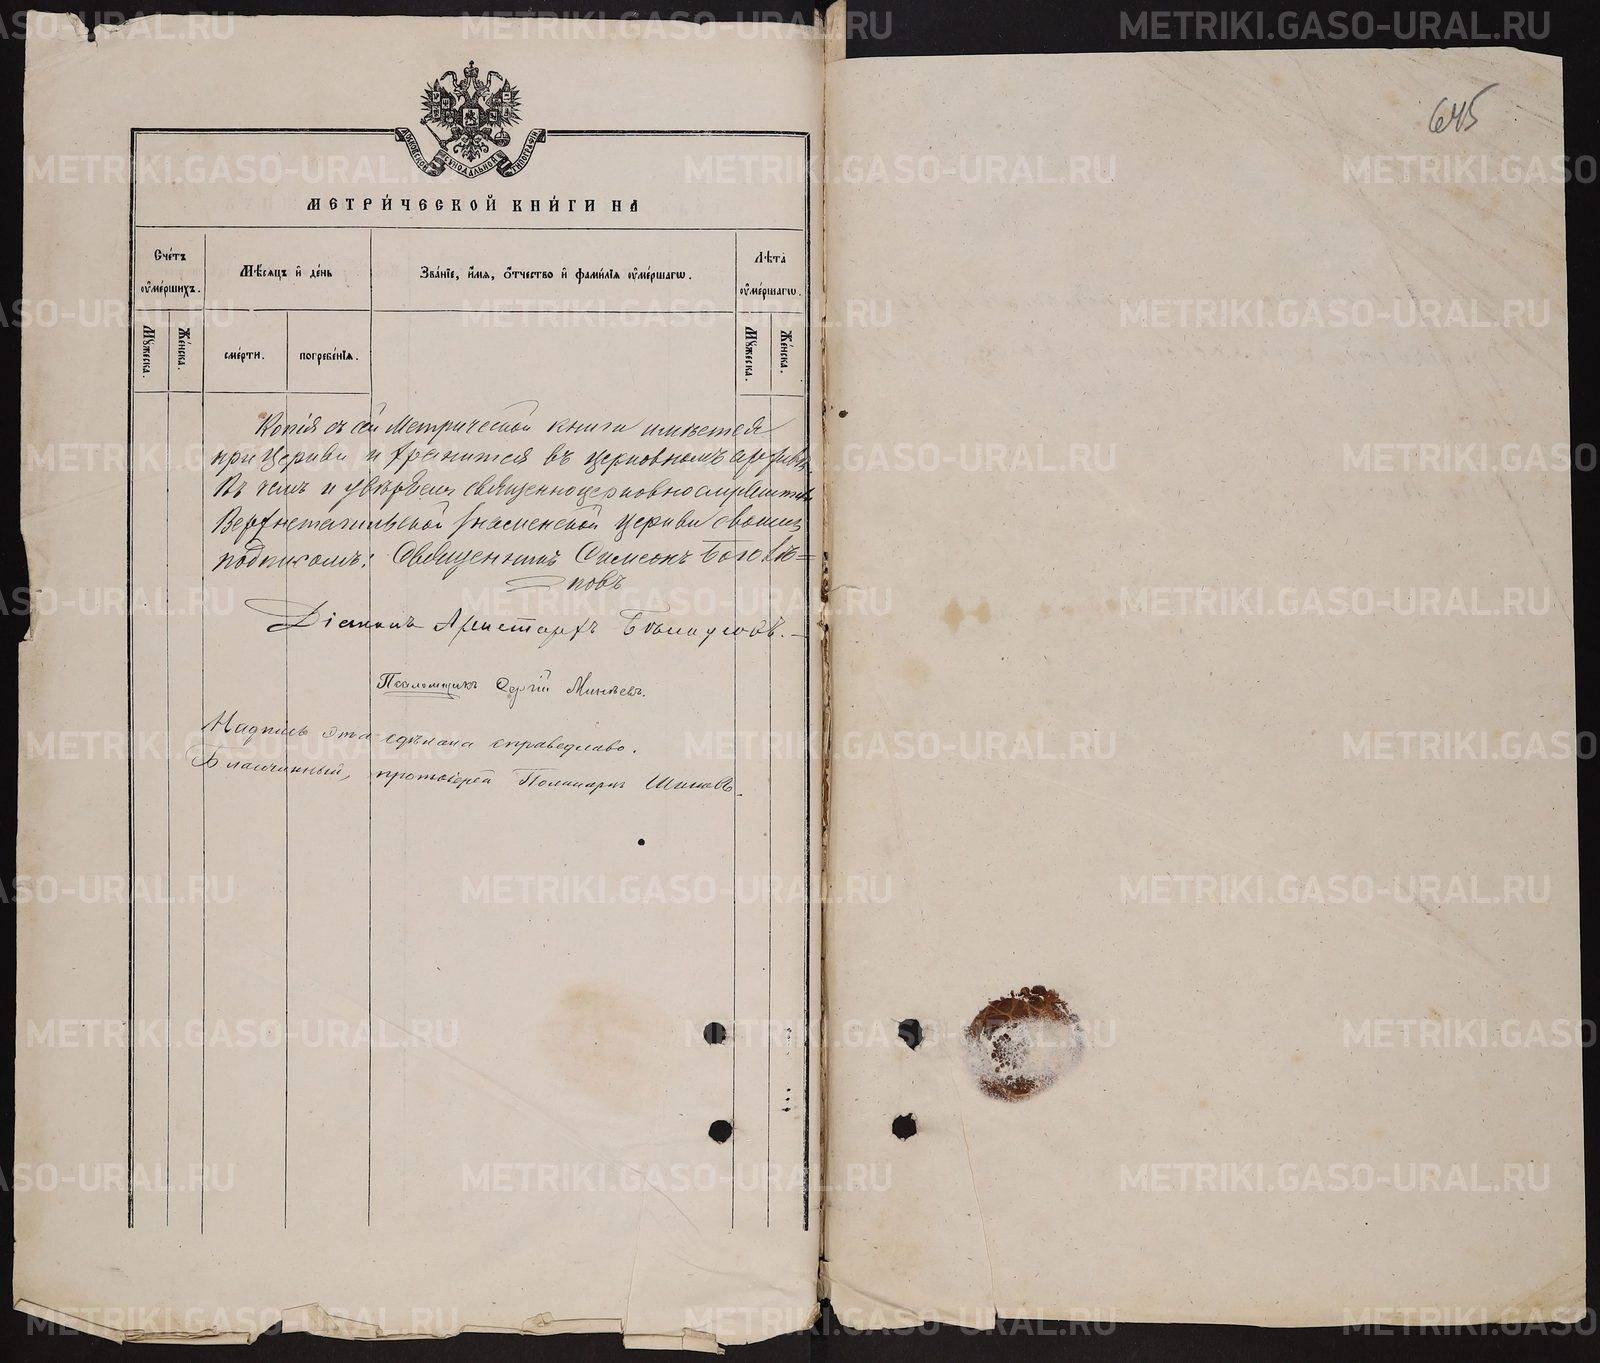 645
МОСКОВСКОЙ СѴНОДАЛЬНОЙ ТИПОГРАФІИ
МЕТРИ́ЧЕСКОЙ КНИ́ГИ НА
Сче́тъ ᲂу҆ме́ршихъ.
Мѣ́сяцъ и҆ де́нь
Зва́нїе, и҆́мя, ѻ҆́тчество и҆ фами́лїя ᲂу҆ме́ршагѡ.
Лѣ́та ᲂу҆ме́ршагѡ.
Мꙋ́жеска.
Же́нска.
сме́рти.
погребе́нїя.
Мꙋ́жеска.
Же́нска.
Копія съ сей Метрической книги имѣется
при церкви и хранится въ церковномъ архивѣ.
Въ чемъ и увѣряемъ священноцерковнослужители
Верхнетагильской Знаменской церкви своимъ
подписомъ: Священникъ Симеонъ Боголѣ=
повъ
Діаконъ Аристархъ
Псаломщикъ Сергій Минѣевъ.
Надпись эта сдѣлана справедливо.
Благочинный, протоіерей Поликарпъ
METRIKI.GASO-URAL.RU